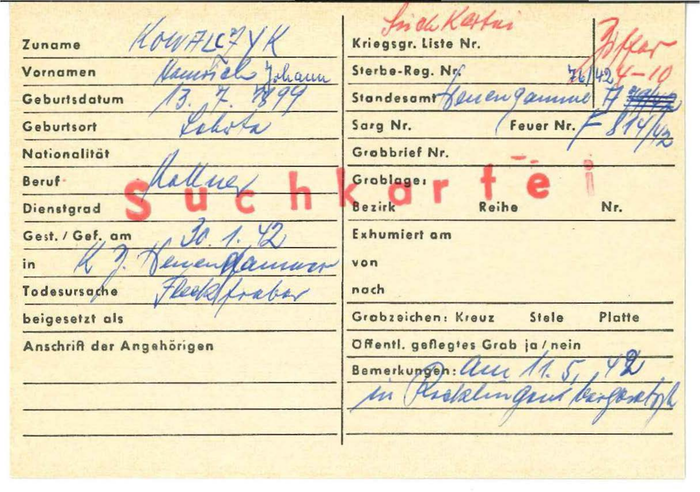 Zuname KOWALCZYK
Vornamen Heinrich Johann
Geburtsdatum 13. 7. 1899
Geburtsort
Nationalität
Beruf
Dienstgrad
Gest./Gef. am 30. 1. 42
in K Z. Neuengamme
Todesursache Fleckfieber
beigesetzt als
Anschrift der Angehörigen
Suchkartei
Kriegsgr. Liste Nr.
Ziffer
4-10
Sterbe-Reg. Nr. 76/42
Standesamt Neuengamme A
Sarg Nr. Feuer Nr. F 814/42
Grabbrief Nr.
Grablage:
Bezirk Reihe Nr.
Exhumiert am
von
nach
Grabzeichen: Kreuz Stele Platte
Öffentl. gepflegtes Grab ja/nein
Bemerkungen: am 11. 5. 42
in Recklinghausen
Suchkartei